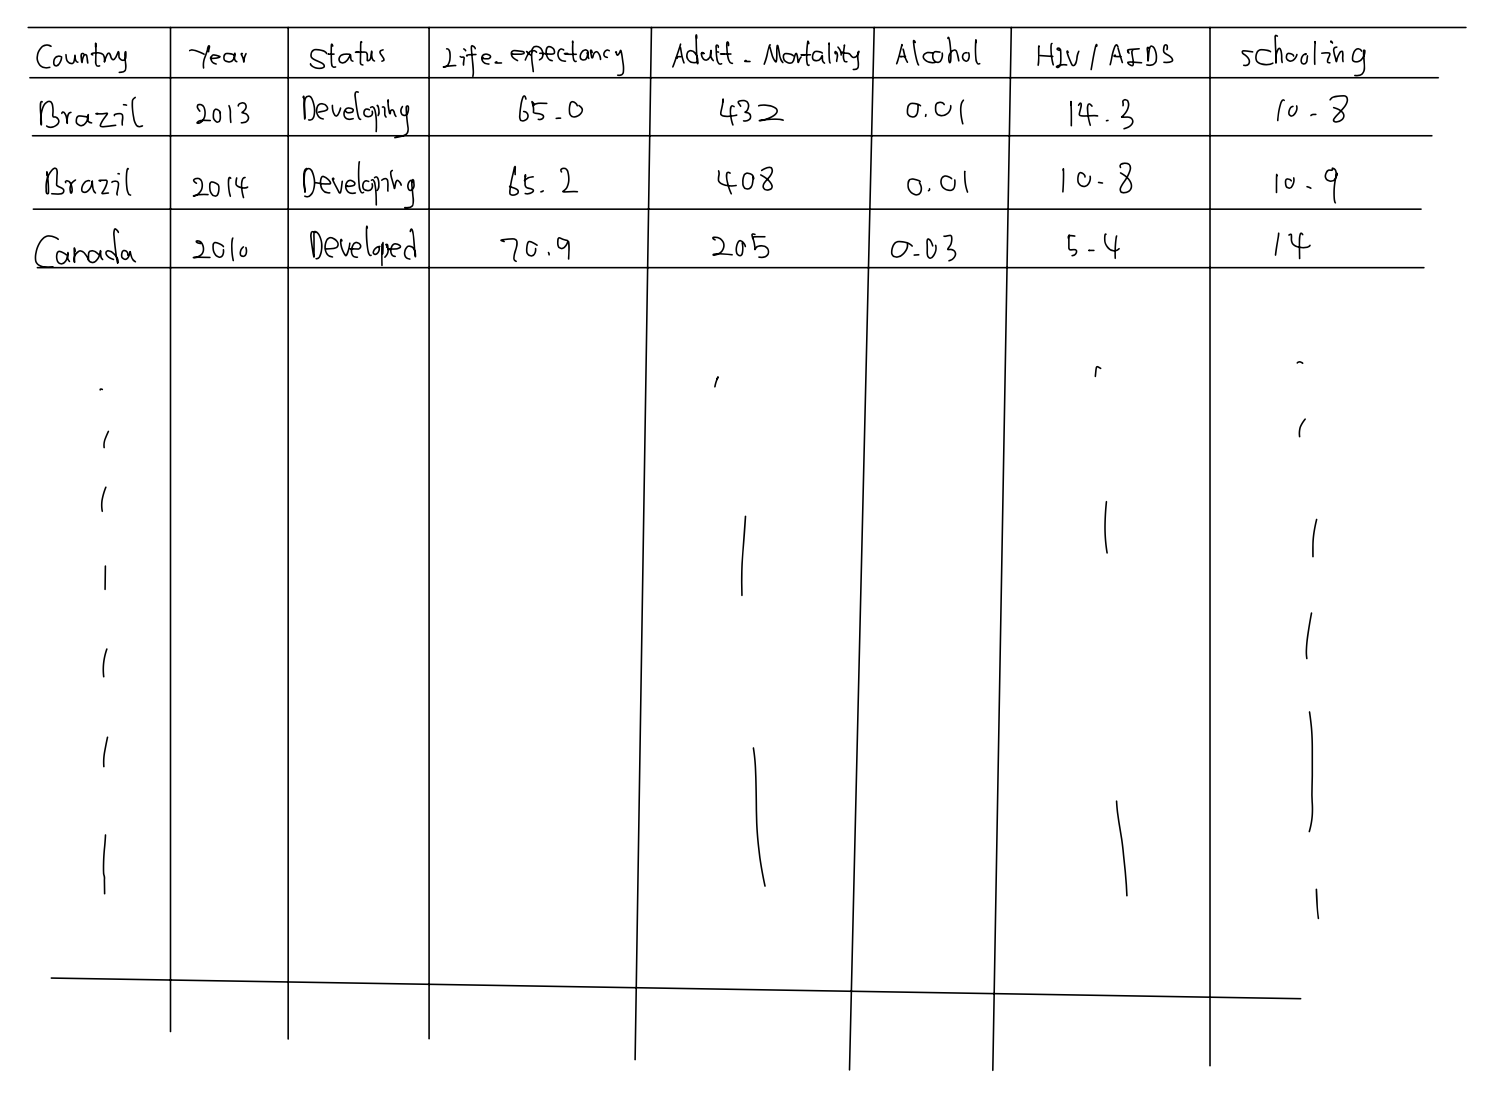 Country Year Status Life_expectancy Adult_Mortality Alcohol HIV/AIDS schooling
Brazil 2013 Developing 65.0 432 0.01 14.3 10.8
Brazil 2014 Developing 65.2 408 0.01 10.8 10.9
Canada 2010 Developed 70.9 205 0.03 5.4 14